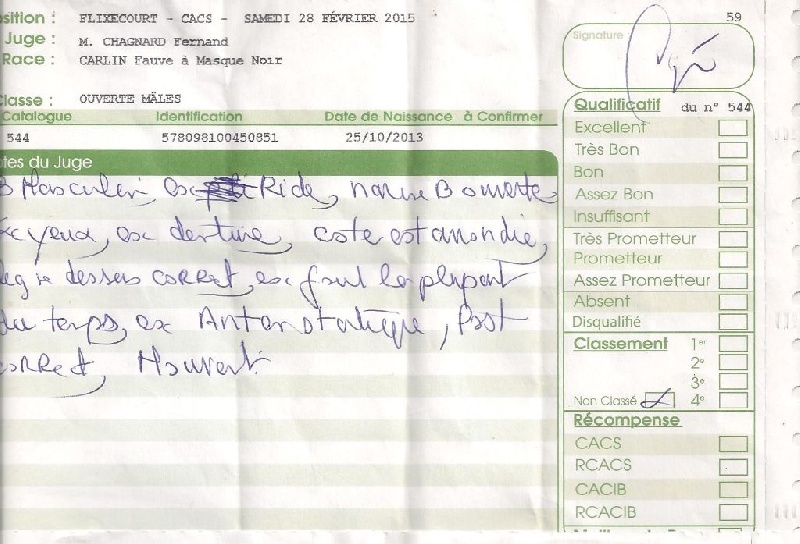 osition : FLIXECOURT - CACS - SAMEDI 28 FÉVRIER 2015
59
Juge : M. CHAGNARD Fernand
Race : CARLIN Fauve à Masque Noir
Signature
Classe : OUVERTE MÂLES
Catalogue Identification Date de Naissance à Confirmer
544 578098100450851 25/10/2013
otes du Juge
B Masculin, ex Ride, narine B ouverte
ex yeux, ex denture, cote est arrondie,
dessus correct, ex fouet la plupart
du temps, ex Antérieur
correct, Mouvent
Qualificatif du n° 544
Excellent
Très Bon
Bon
Assez Bon
Insuffisant
Très Prometteur
Prometteur
Assez Prometteur
Absent
Disqualifié
Classement 1er
2e
3e
Non Classé 4e
Récompense
CACS
RCACS
CACIB
RCACIB